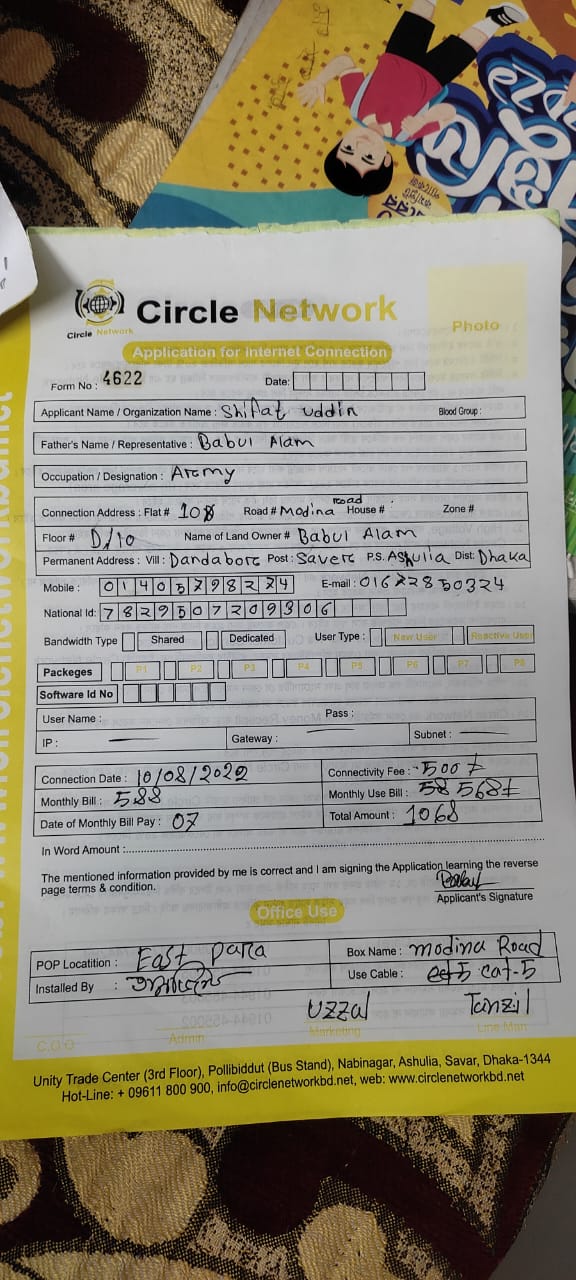 Circle Network
Circle Network
Photo
Application for Internet Connection
Form No : 4622 Date:
Applicant Name / Organization Name : Shifat uddin Blood Group :
Father's Name / Representative : Babul Alam
Occupation / Designation : Army
Connection Address : Flat # 108 Road # Modina road House # Zone #
Floor # D/10 Name of Land Owner # Babul Alam
Permanent Address : Vill : Dandabore Post : Savere P.S. Ashulia Dist: Dhaka
Mobile : 01405798224 E-mail :
National Id: 7829507209306
Bandwidth Type Shared Dedicated User Type : New User Reactive User
Packeges P1 P2 P3 P4 P5 P6 P7 P8
Software Id No
User Name : Pass :
IP : Gateway : Subnet :
Connection Date : 10/08/2022 Connectivity Fee : 500
Monthly Bill : 588 Monthly Use Bill : 568
Date of Monthly Bill Pay : 07 Total Amount : 1068
In Word Amount :
The mentioned information provided by me is correct and I am signing the Application learning the reverse
page terms & condition.
Applicant's Signature
Office Use
POP Locatition : East para Box Name : modina Road
Installed By : Use Cable : cat-5
Uzzal Tanzil
C.O.O Admin Marketing Line Man
Unity Trade Center (3rd Floor), Pollibiddut (Bus Stand), Nabinagar, Ashulia, Savar, Dhaka-1344
Hot-Line: + 09611 800 900, info@circlenetworkbd.net, web: www.circlenetworkbd.net